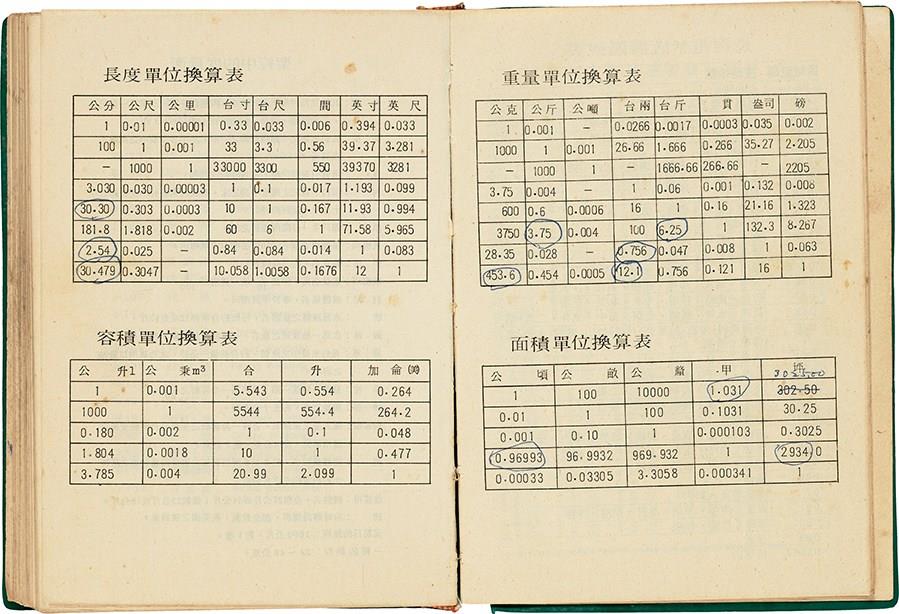 長度單位換算表
公分 公尺 公里 台寸 台尺 間 英寸 英尺
1 0.01 0.00001 0.33 0.033 0.006 0.394 0.033
100 1 0.001 33 3.3 0.56 39.37 3.281
— 1000 1 33000 3300 550 39370 3281
3.030 0.030 0.00003 1 0.1 0.017 1.193 0.099
30.30 0.303 0.0003 10 1 0.167 11.93 0.994
181.8 1.818 0.002 60 6 1 71.58 5.965
2.54 0.025 — 0.84 0.084 0.014 1 0.083
30.479 0.3047 — 10.058 1.0058 0.1676 12 1
容積單位換算表
公升l 公秉m³ 合 升 加侖
1 0.001 5.543 0.554 0.264
1000 1 5544 554.4 264.2
0.180 0.002 1 0.1 0.048
1.804 0.0018 10 1 0.477
3.785 0.004 20.99 2.099 1
重量單位換算表
公克 公斤 公噸 台兩 台斤 貫 盎司 磅
1 0.001 — 0.0266 0.0017 0.0003 0.035 0.002
1000 1 0.001 26.66 1.666 0.266 35.27 2.205
— 1000 1 — 1666.66 266.66 — 2205
3.75 0.004 — 1 0.06 0.001 0.132 0.008
600 0.6 0.0006 16 1 0.16 21.16 1.323
3750 3.75 0.004 100 6.25 1 132.3 8.267
28.35 0.028 — 0.756 0.047 0.008 1 0.063
453.6 0.454 0.0005 12.1 0.756 0.121 16 1
面積單位換算表
公頃 公畝 公釐 甲 坪
3025.00
1 100 10000 1.031 302.50
0.01 1 100 0.1031 30.25
0.001 0.10 1 0.000103 0.3025
0.96993 96.9932 969.932 1 2934.0
0.00033 0.03305 3.3058 0.000341 1